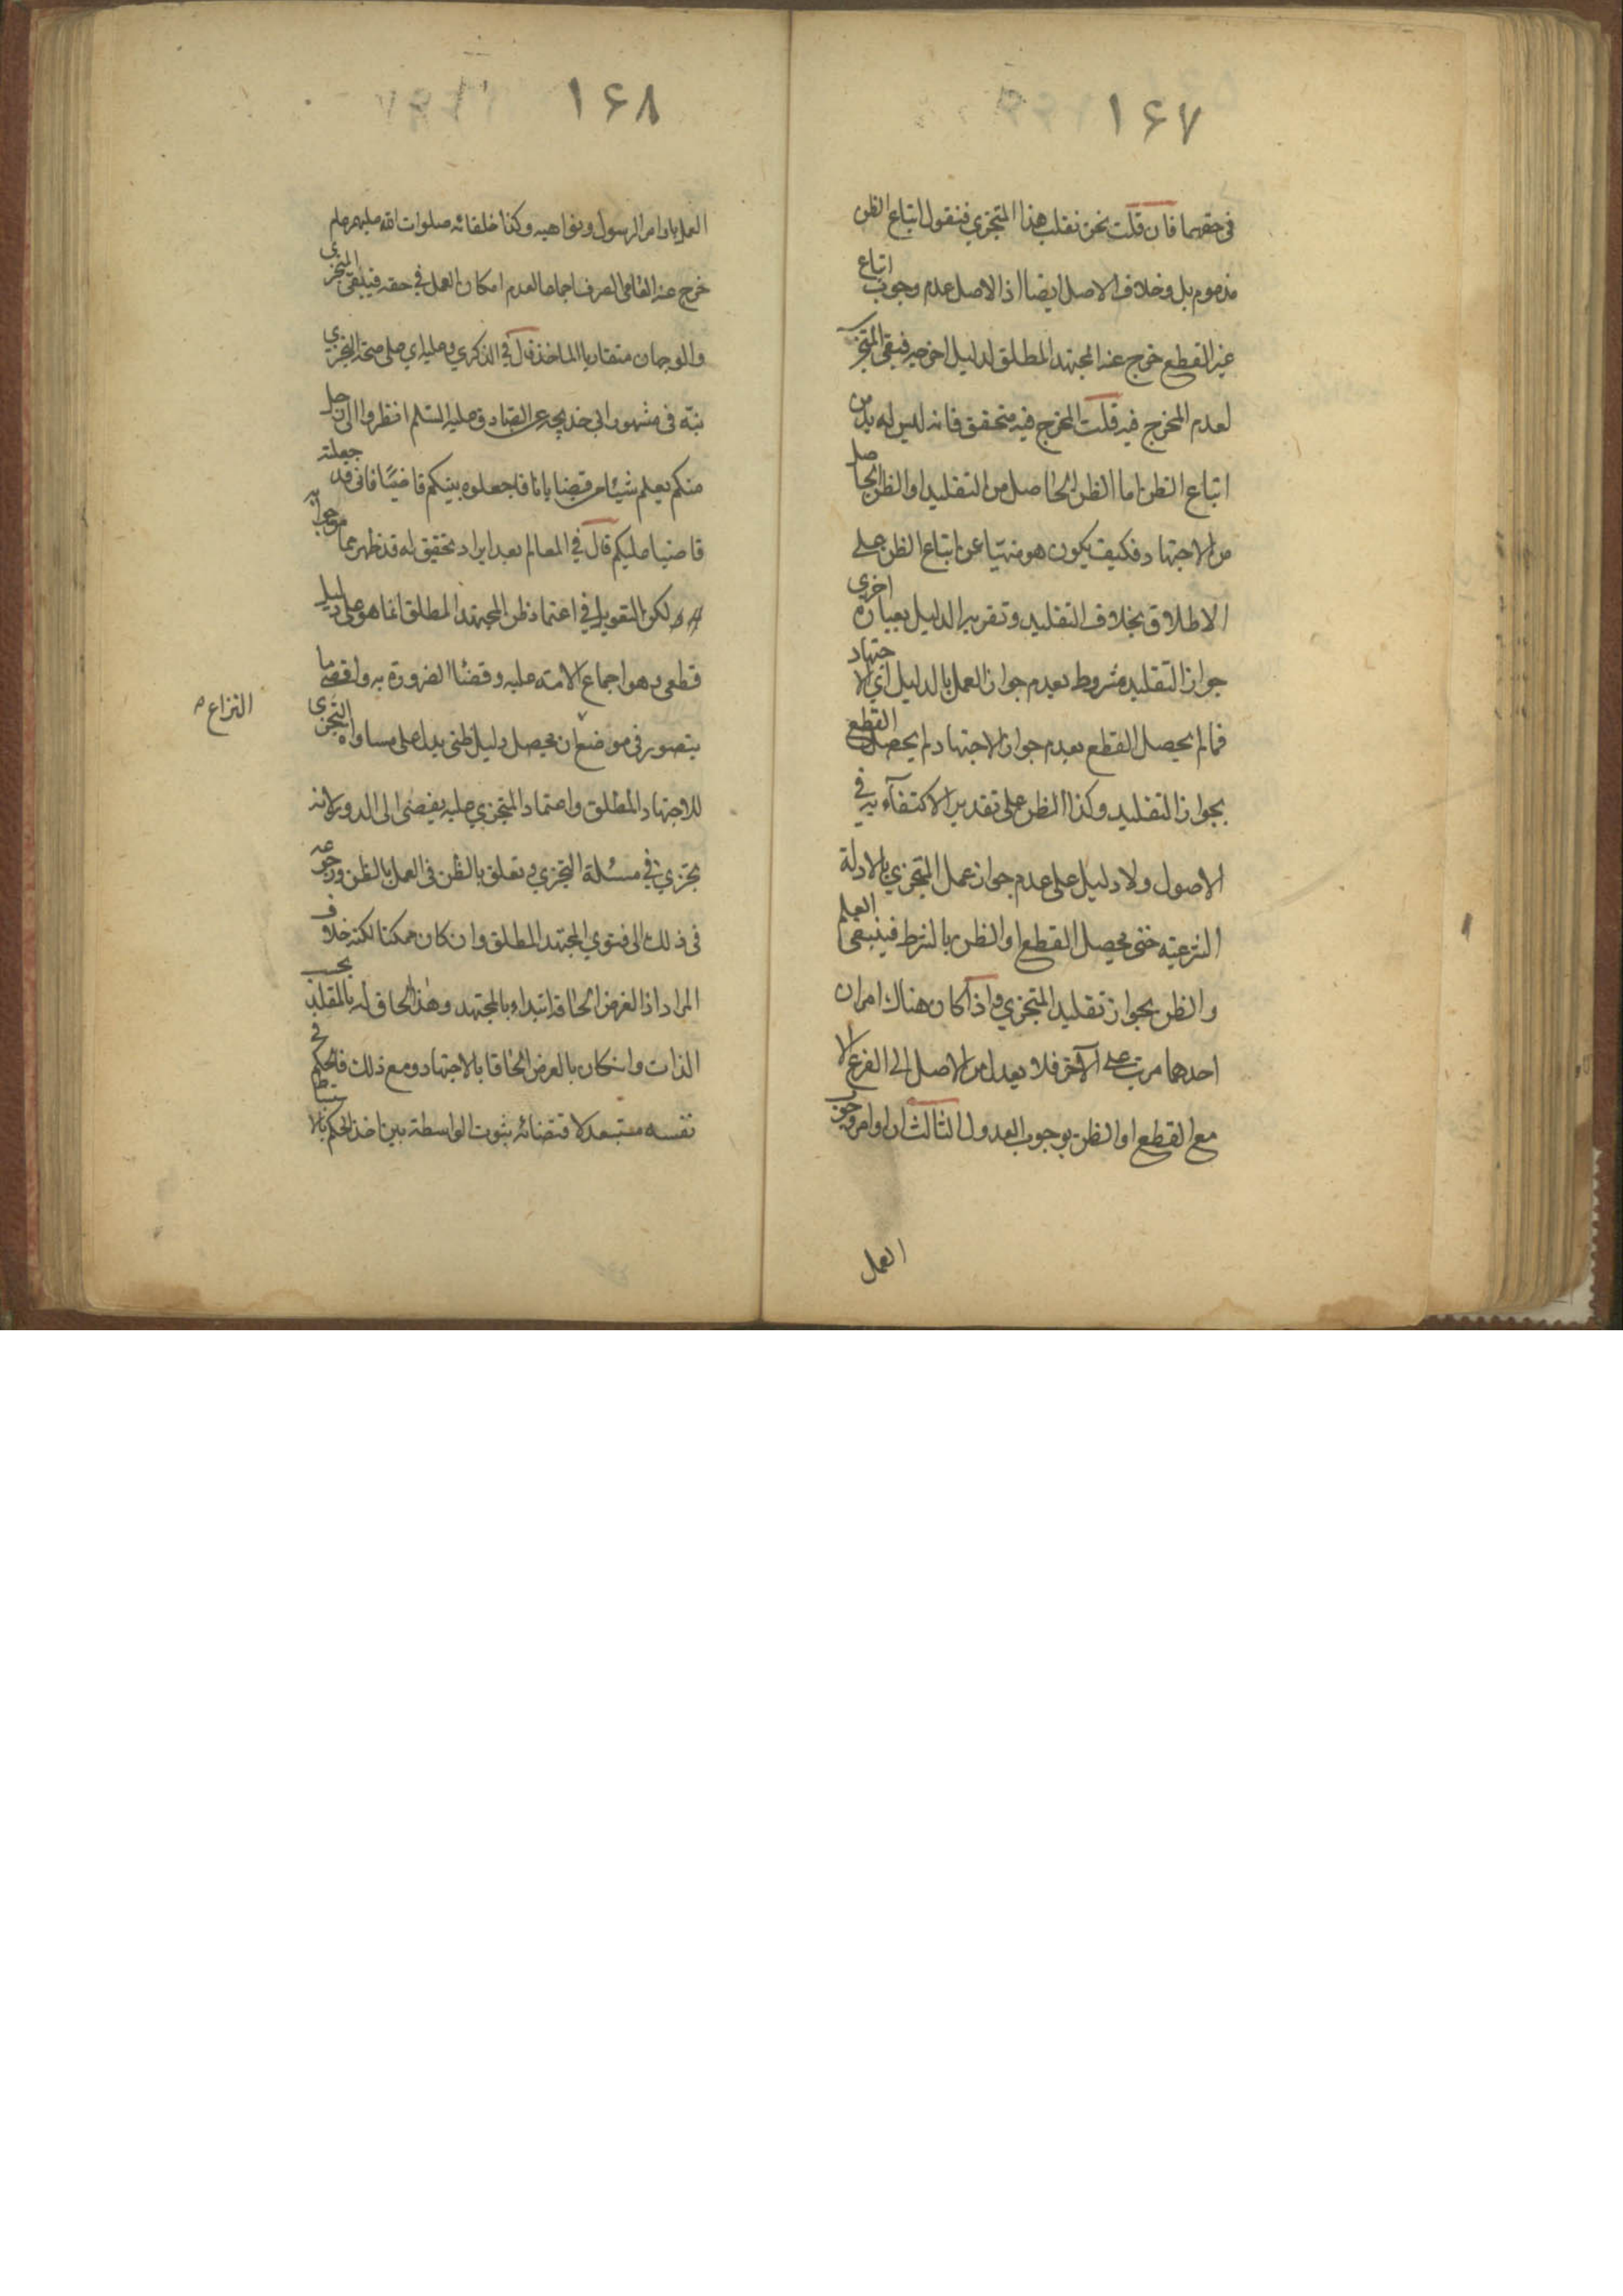 ١۶٧
فى حقهما فان قلت نحن نقلب هذا المتجزي فنقول اتباع الظن
مذموم بل و خلاف الاصل ايضا اذ الاصل عدم وجوب اتباع
غير القطع خرج عنه المجتهد المطلق لدليل اخرجه فبقى المتجزي
لعدم المخرج فيه قلت المخرج فيه متحقق فانه ليس له بد من
اتباع الظن اما الظن الحاصل من التقليد او الظن الحاصل
من الاجتهاد فكيف يكون هو منهيا عن اتباع الظن على
الاطلاق بخلاف التقليد و تقرير الدليل بعبارة اخرى
جواز التقليد مشروط بعدم جواز العمل بالدليل اي الاجتهاد
فما لم يحصل القطع بعدم جواز الاجتهاد لم يحصل القطع
بجواز التقليد وكذا الظن على تقدير الاكتفاء به في
الاصول ولا دليل على عدم جواز عمل المتجزي بالادلة
الشرعية حتى يحصل القطع او الظن بالشرط فينبغى العلم
و الظن بجواز تقليد المتجزي و اذا كان هناك امران
احدهما مرتب على الآخر فلا يعدل من الاصل الى الفرع الا
مع القطع او الظن بوجوب العدول الثالث ان اوامر وجوب
العمل
١۶٨
العمل باوامر الرسول و نواهيه و كذا خلفائه صلوات الله عليهم عام
خرج عنه العامى الصرف اجماعا لعدم امكان العمل في حقه فيبقى المتجزى
و الوجهان متقاربا الماخذ قال في الذكري و عليه اي على صحة التجزي
نبّه فى مشهور ابي خديجه عن الصادق عليه السّلم انظروا الى رجل
منكم يعلم شيئا من قضايانا فاجعلوه بينكم قاضيًا فانى قد جعلته
قاضيا عليكم قال في المعالم بعد ايراد تحقيق له قد ظهر مما جوابه
لكن التعويل في اعتماد ظن المجتهد المطلق انما هو على دليل
قطعى و هو اجماع الامة عليه و قضاء الضرورة به و اقصى ما
يتصور فى موضع ان يحصل دليل ظنى يدل على مساواة التجزى
النزاع
للاجتهاد المطلق و اعتماد المتجزي عليه يفضى الى الدور لانه
تجزي في مسئلة التجزي و تعلق بالظن فى العمل بالظن و رجوعه
فى ذلك الى فتوي المجتهد المطلق و ان كان ممكنا لكنه خلاف
المراد اذ الغرض الحاقه ابتداء بالمجتهد و هذا الحاق له بالمقلد بحسب
الذات و ان كان بالعرض الحاقا بالاجتهاد و مع ذلك فالحكم في
نفسه مستبعد لاقتضائه ثبوت الواسطة بين اخذ الحكم بالاستنباط